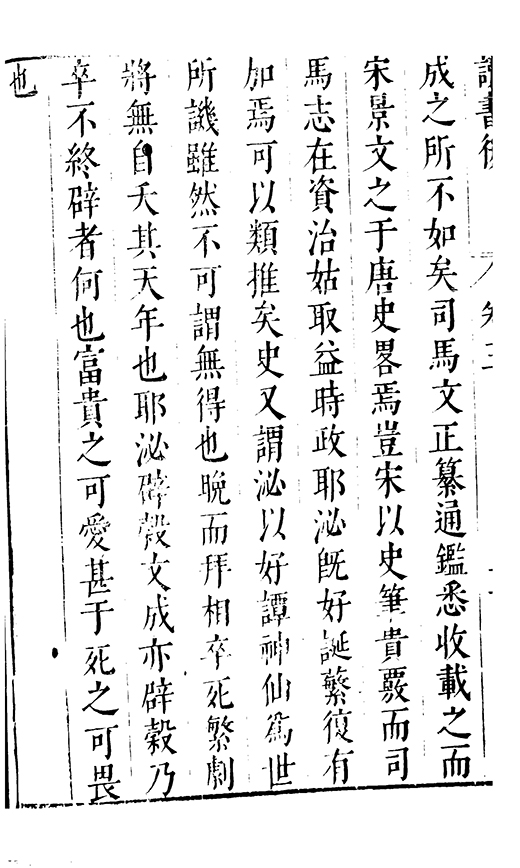 讀書後 卷三
成之所不如矣司馬文正纂通鑑悉收載之而
宋景文之于唐史畧焉豈宋以史筆貴覈而司
馬志在資治姑取益時政耶泌既好誕繁復有
加焉可以類推矣史又謂泌以好譚神仙為世
所譏雖然不可謂無得也晚而拜相卒死繁劇
將無自夭其天年也耶泌辟穀文成亦辟穀乃
卒不終辟者何也富貴之可愛甚于死之可畏
也